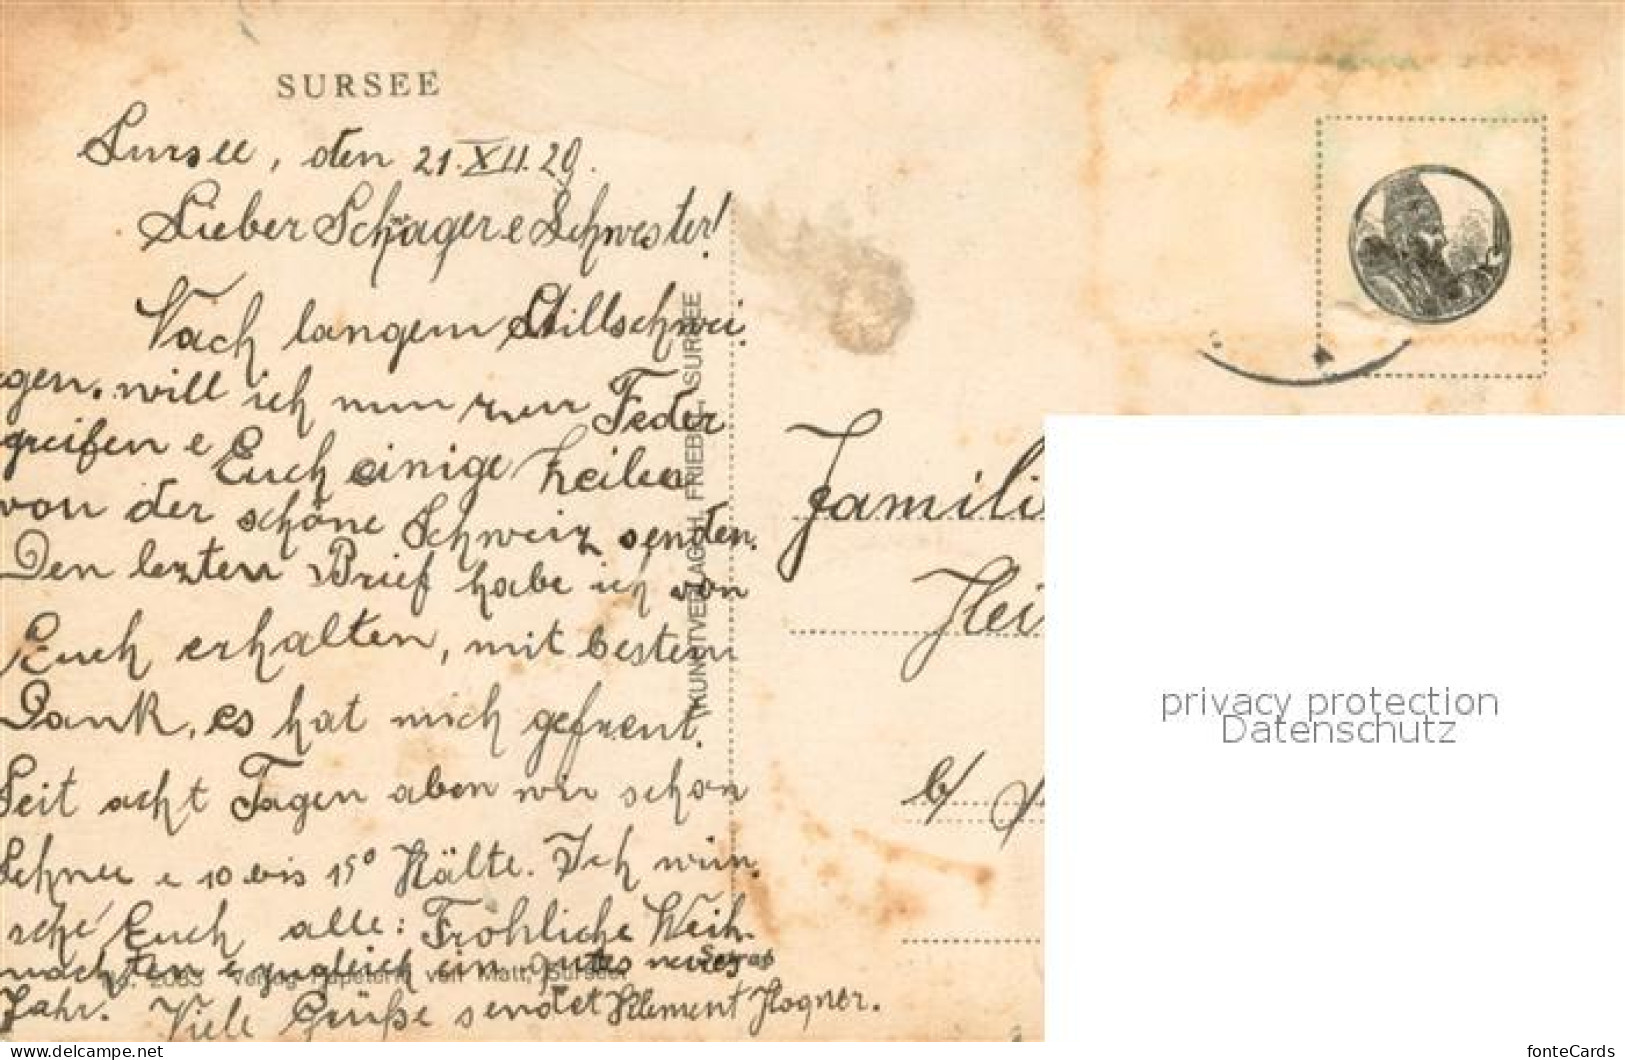 SURSEE
Sursee, den 21.XII.29.
Lieber Schwager e Schwester!
Nach langem Stillschwei-
gen, will ich nun zur Feder
greifen e Euch einige Zeilen
von der schöne Schweiz senden.
Den lezten Brief habe ich von
Euch erhalten, mit bestem
Dank, es hat mich gefreut.
Seit acht Tagen aben wir schon
Schnee e 10 bis 15° Kälte. Ich wün-
sche Euch alle: Fröhliche Weih-
nachten e zugleich ein gutes neues
Jahr. Viele Grüße sendet Klement Hogner.
KUNSTVERLAG H. FRIEBEL, SURSEE
No. 2083 Verlag Papeterie von Matt, Sursee
Famili
Hei
b/
privacy protection
Datenschutz
https://www.delcampe.net
fonteCards